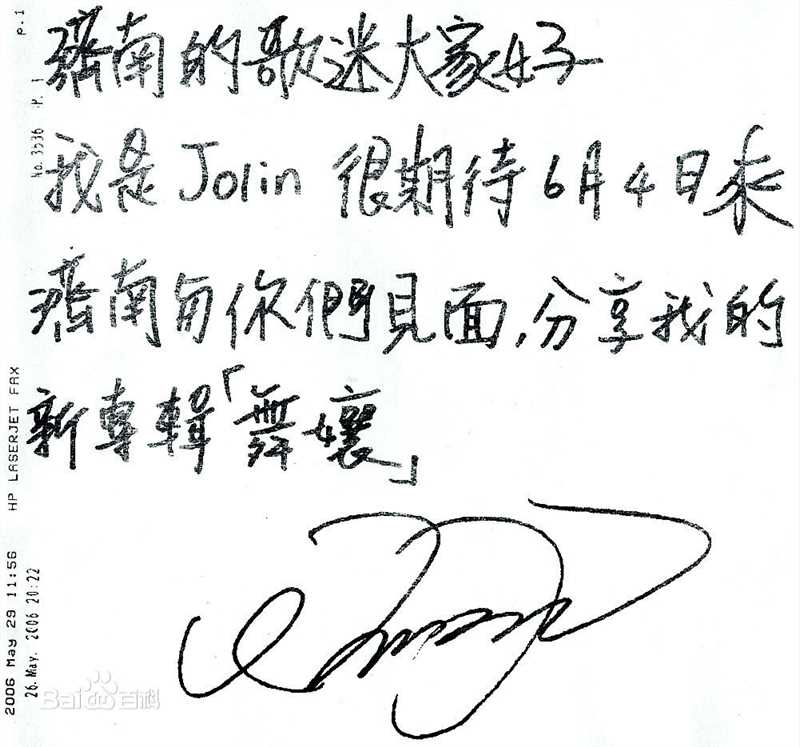 濟南的歌迷大家好
我是Jolin 很期待6月4日來
濟南與你們見面,分享我的
新專輯「舞孃」
2006 May 29 11:56 HP LASERJET FAX p.1
26. May. 2006 20:22 No. 3536 P. 1
Bai百科